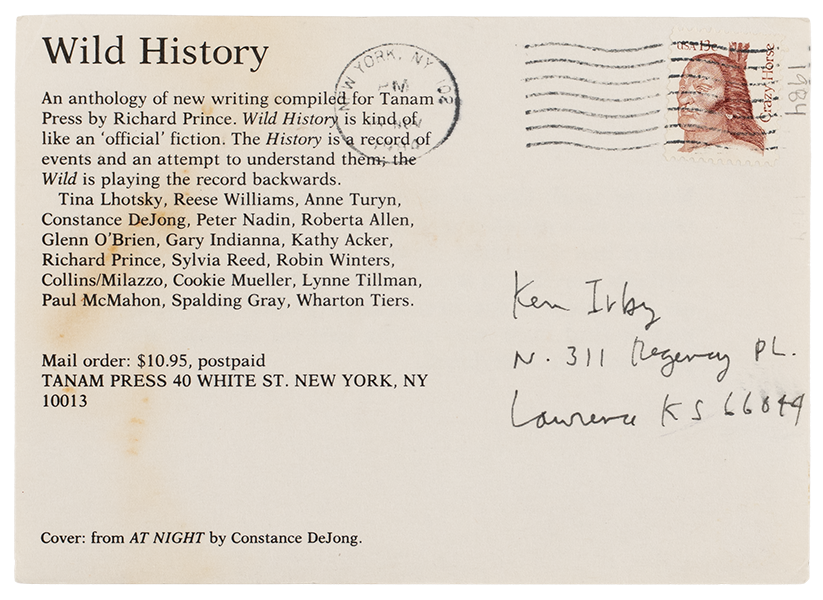 Wild History
An anthology of new writing compiled for Tanam
Press by Richard Prince. Wild History is kind of
like an ‘official’ fiction. The History is a record of
events and an attempt to understand them; the
Wild is playing the record backwards.
Tina Lhotsky, Reese Williams, Anne Turyn,
Constance DeJong, Peter Nadin, Roberta Allen,
Glenn O’Brien, Gary Indianna, Kathy Acker,
Richard Prince, Sylvia Reed, Robin Winters,
Collins/Milazzo, Cookie Mueller, Lynne Tillman,
Paul McMahon, Spalding Gray, Wharton Tiers.
Mail order: $10.95, postpaid
TANAM PRESS 40 WHITE ST. NEW YORK, NY
10013
Cover: from AT NIGHT by Constance DeJong.
NEW YORK, NY 102
PM
USA 13c
Crazy Horse
1984
Ken Irby
N. 311 Regency PL.
Lawrence KS 66044